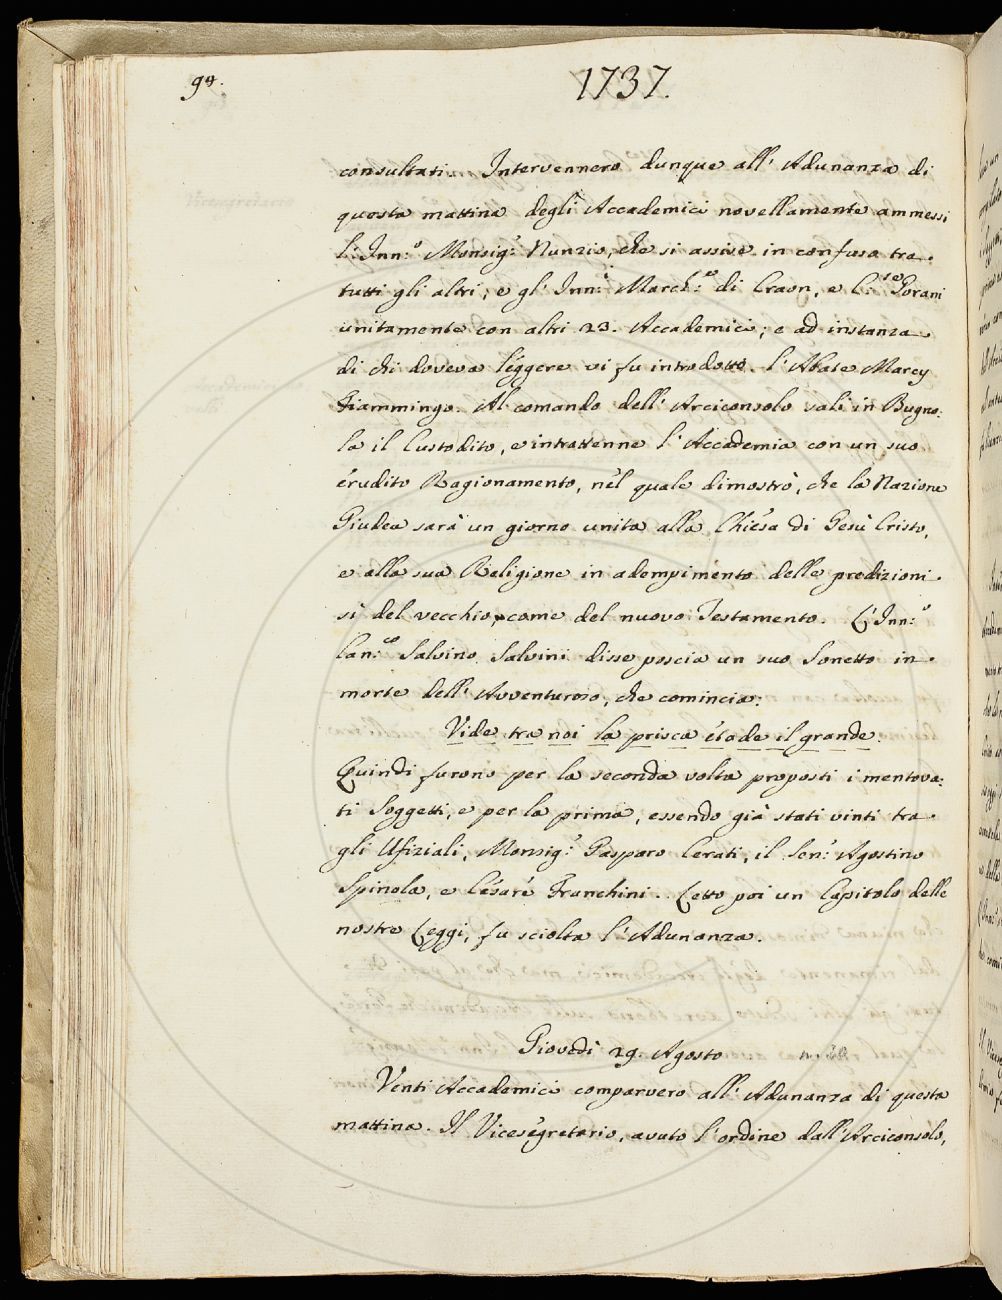 94.
1737.
consultati. Intervennero dunque all' Adunanza di
questa mattina degli Accademici novellamente ammessi
l'Inn.º Monsig.ʳ Nunzio, che si assise in confuso tra
tutti gli altri, e gl' Inn.ⁱ March.ˢᵉ di Craon, e C.ᵗᵉ Lorani
unitamente con altri 23. Accademici; e ad instanza
di chi doveva leggere vi fu introdotto l'Abate Marcy
Fiammingo. Al comando dell' Arciconsolo salì in Bugno:
la il Custodito, e intrattenne l'Accademia con un suo
erudito Ragionamento, nel quale dimostrò, che la Nazione
Giudea sarà un giorno unita alla Chiesa di Gesù Cristo,
e alla sua Religione in adempimento delle predizioni
sì del vecchio, come del nuovo Testamento. L'Inn.º
Can.ᶜᵒ Salvino Salvini disse poscia un suo Sonetto in
morte dell' Avventuroso, che comincia:
Vide tra noi la prisca etade il grande.
Quindi furono per la seconda volta proposti i mentova:
ti Soggetti, e per la prima, essendo già stati vinti tra
gli Ufiziali, Monsig.ʳ Gasparo Cerati, il Sen.ʳ Agostino
Spinola, e Cesare Franchini. Letto poi un Capitolo delle
nostre Leggi, fu sciolta l'Adunanza.
Giovedì 29. Agosto
Venti Accademici comparvero all' Adunanza di questa
mattina. Il Vicesegretario, avuto l'ordine dall'Arciconsolo,